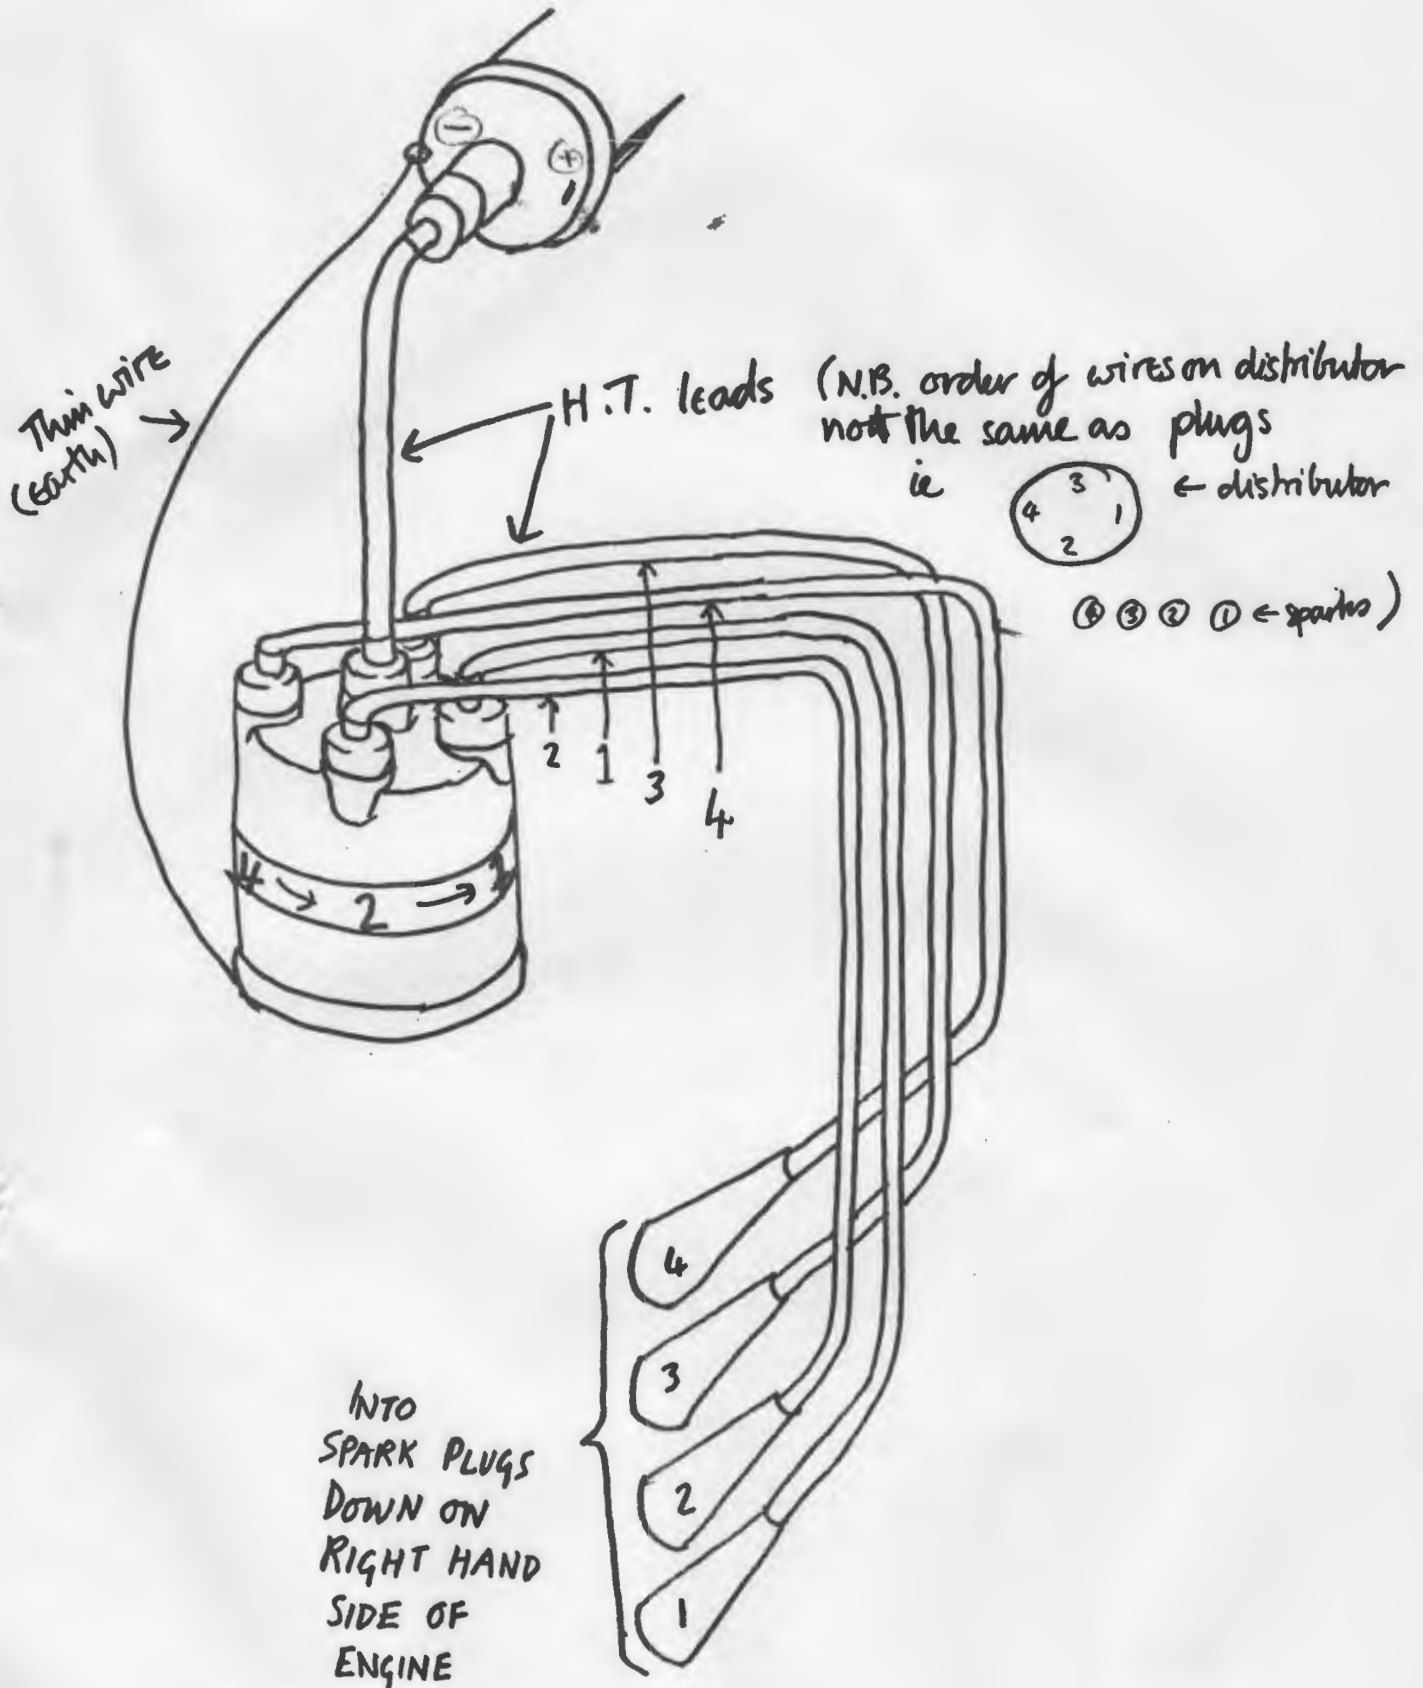 −
+
Thin wire
(earth)
H.T. leads
(N.B. order of wires on distributor
not the same as plugs
ie
3
4 1
2
← distributor
④ ③ ② ① ← sparks)
2 1 3 4
4 → 2 → 1
4
3
2
1
INTO
SPARK PLUGS
DOWN ON
RIGHT HAND
SIDE OF
ENGINE